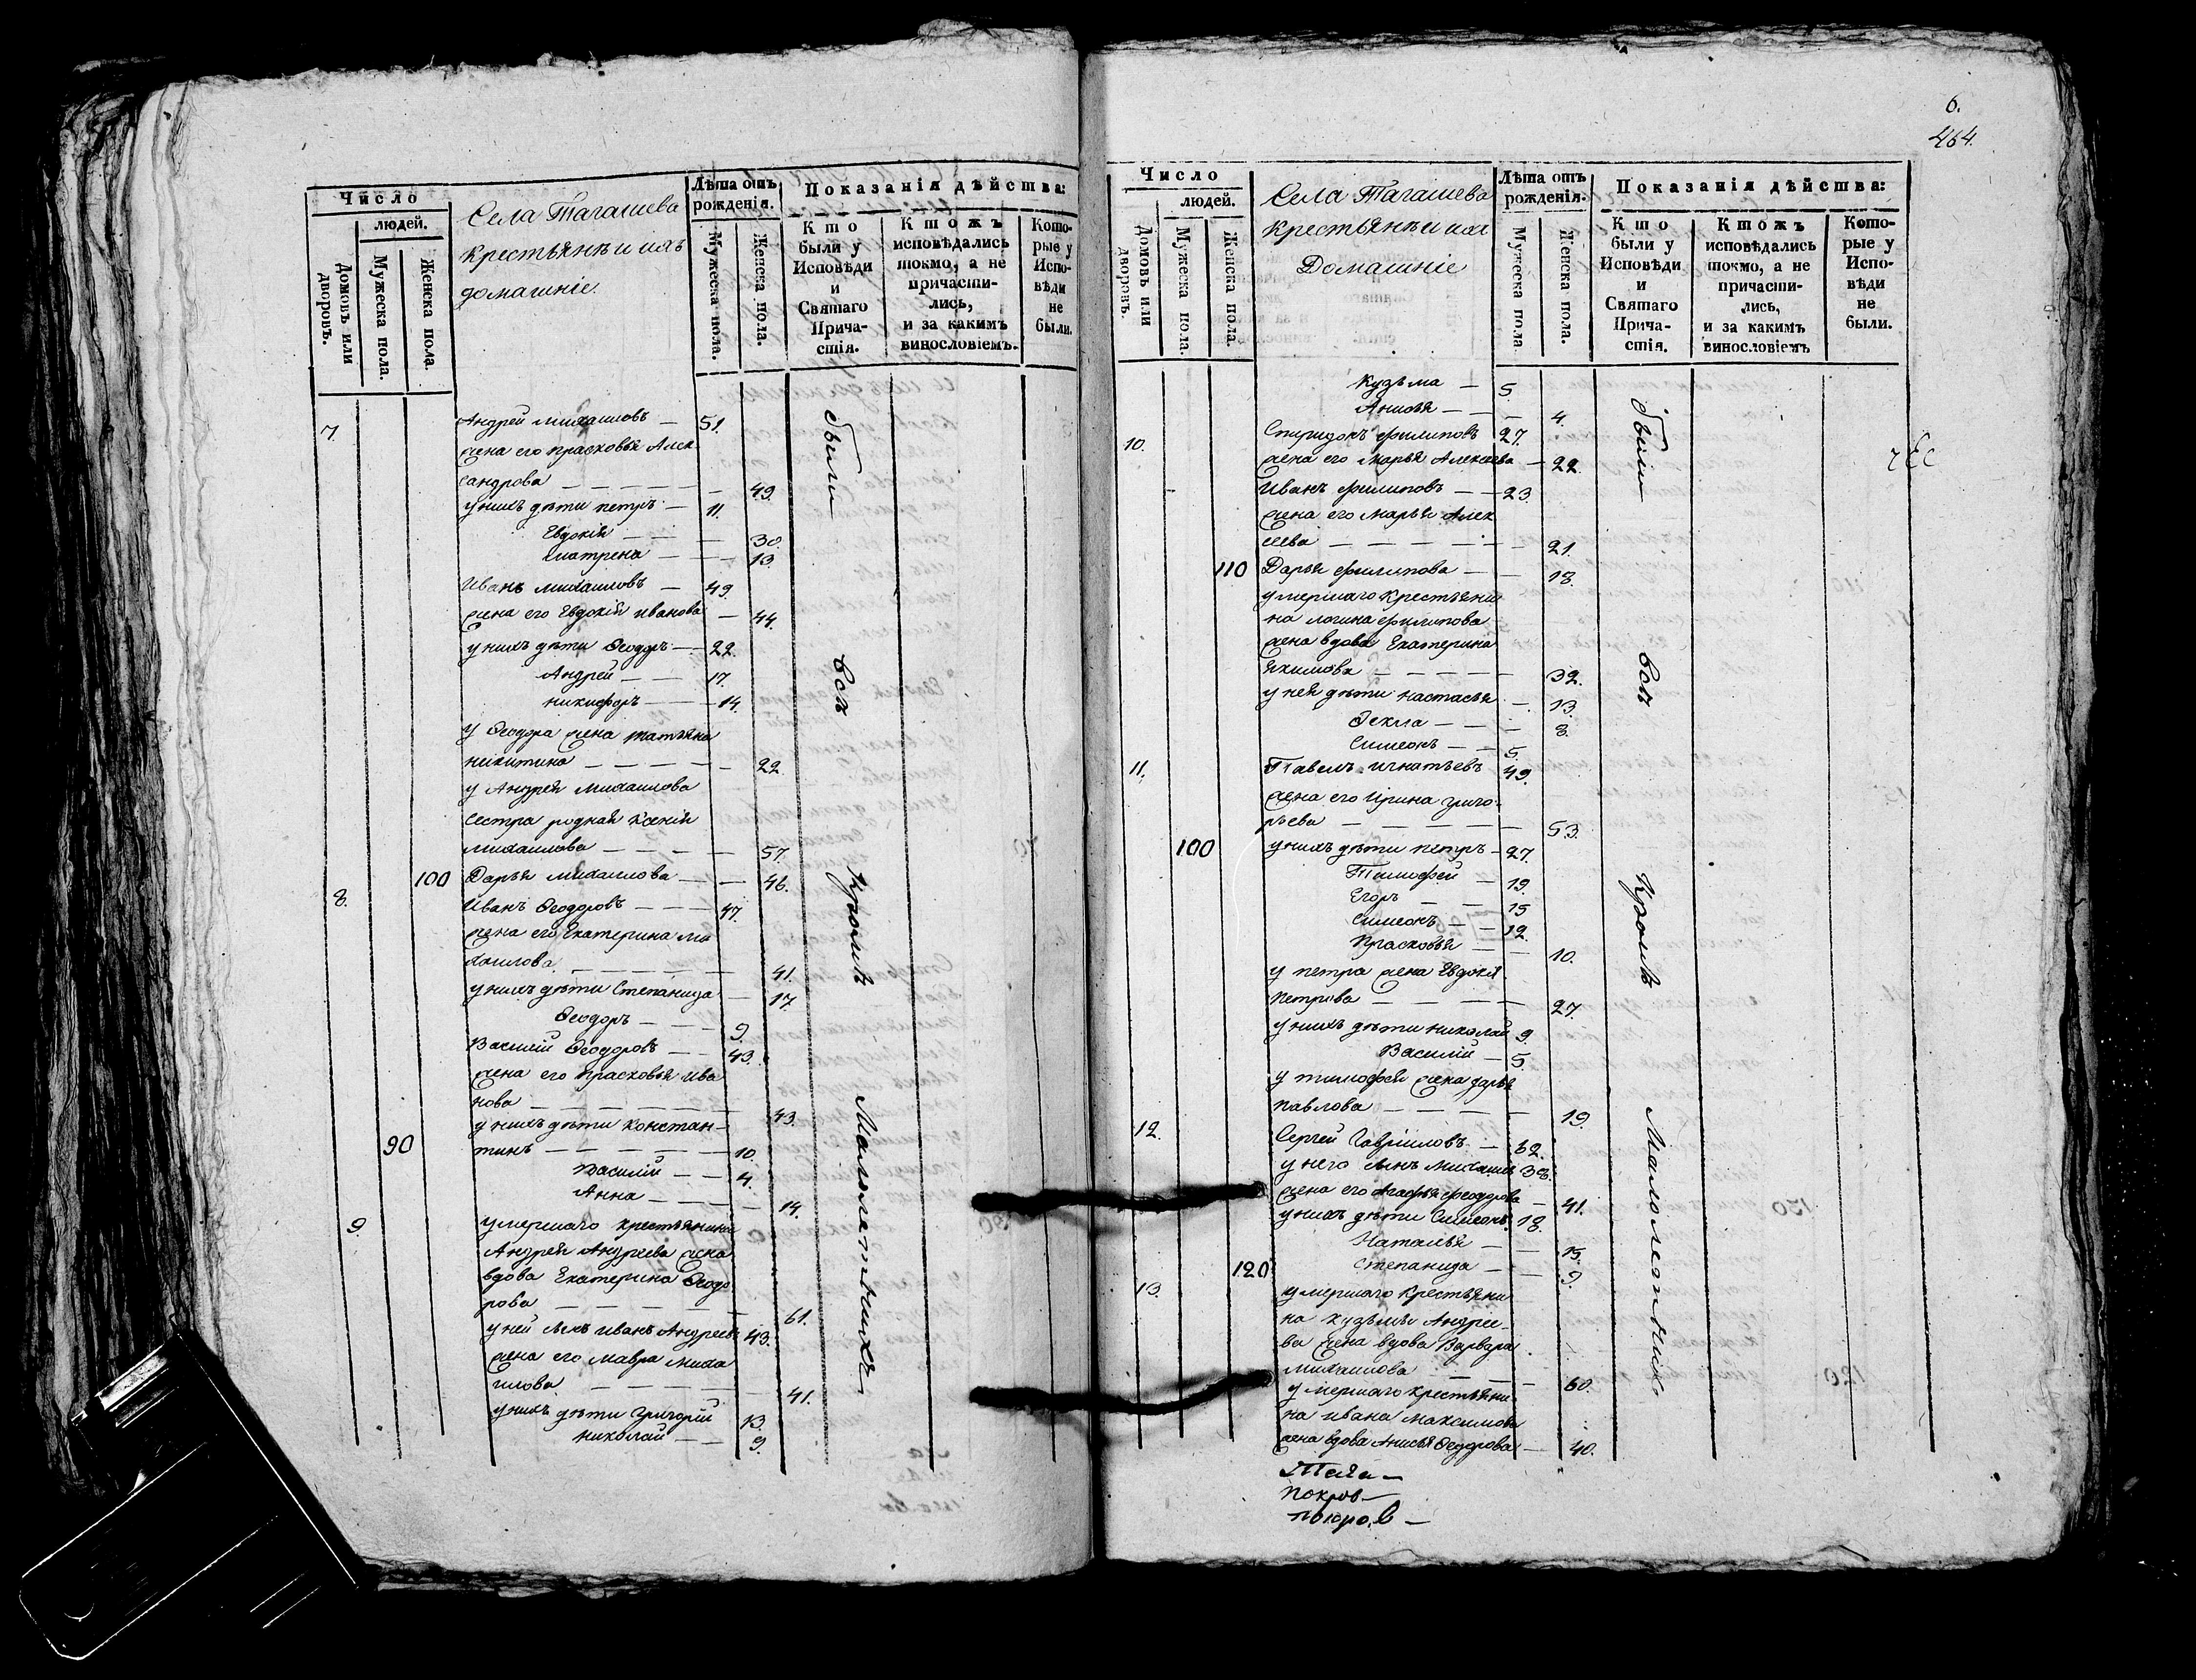 Число
людей.
Домовъ или дворовъ.
Мужеска пола.
Женска пола.
Села Тагашева
крестьянѣ и ихъ
домашніе.
Лѣта отъ рожденія.
Мужеска пола.
Женска пола.
Показанія дѣйства:
Кто были у Исповѣди и Святаго Прича-стія.
Ктожъ исповѣдались токмо, а не причасти-лись, и за какимъ винословіемъ.
Кото-рые у Испо-вѣди не были.
7. Андрей Михаиловъ — 51.
жена его Прасковья Алек
сандрова — 49.
у нихъ дѣти Петръ — 11.
Евдокія — 30.
Матрена — 13.
Иванъ Михаиловъ — 49.
жена его Евдокія Иванова — 44.
у нихъ дѣти Ѳеодоръ — 22.
Андрей — 17.
Никифоръ — 14.
у Ѳеодора жена Татьяна
Никитина — 22
у Андрея Михаилова
сестра родная Ксенія
Михаилова — 57.
100 Дарья Михаилова — 46.
8. Иванъ Ѳеодоровъ — 47.
жена его Екатерина Ми
хаилова — 41.
у нихъ дѣти Степанида — 17.
Ѳеодоръ — 9.
Василій Ѳеодоровъ — 43.
жена его Прасковья Ива
нова — 43.
у нихъ дѣти Констан-
90 тинъ — 10.
Василій — 4.
Анна — 14.
9. умершаго крестьянина
Андрея Андреева жена
вдова Екатерина Ѳеодо
рова — 61.
у ней сынъ Иванъ Андреевъ 43.
жена его Мавра Миха
илова — 41.
у нихъ дѣти Григорій 13.
Николай — 9.
были всѣ кромѣ малолетнихъ
6.
464.
Число
людей.
Домовъ или дворовъ.
Мужеска пола.
Женска пола.
Села Тагашева
крестьянѣ и ихъ
Домашніе
Лѣта отъ рожденія.
Мужеска пола
Женска пола.
Показанія дѣйства:
Кто были у Исповѣди и Святаго Прича-стія.
Ктожъ исповѣдались токмо, а не причасти-лись, и за какимъ винословіемъ
Кото-рые у Испо-вѣди не были.
Кузьма — 5.
Анисья — 4.
10. Спиридонъ Филиповъ 27.
жена его Марья Алексеева — 22.
Иванъ Филиповъ — 23.
жена его Марья Алек
сеева — 21.
110 Дарья Филипова — 18.
умершаго крестьяни
на Логина Филипова
жена вдова Екатерина
Якимова — 32.
у ней дѣти Настасья — 13.
Ѳекла — 8.
Симеонъ — 5.
11. Павелъ Игнатьевъ 49.
жена его Ирина Григо-
рьева — 53.
100 у нихъ дѣти Петръ — 27.
Тимофей — 19.
Егоръ — 15
Симеонъ — 12.
Прасковья — 10.
у Петра жена Евдокія
Петрова — 27.
у нихъ дѣти Николай 9.
Василій — 5
у Тимофея жена Дарья
Павлова — 19.
12. Сергей Гавриловъ — 62.
у него сынъ Михаилъ 38.
жена его Агафья Феодорова — 41.
у нихъ дѣти Симеонъ. 18.
Наталья — 15.
120 Степанида — 9.
13. умершаго крестьяни
на Кузьмы Андрее-
ва жена вдова Варвара
Михаилова — 60.
умершаго крестьяни
на Ивана Максимова
жена вдова Анисья Ѳеодорова — 40.
были всѣ кромѣ малолетнихъ